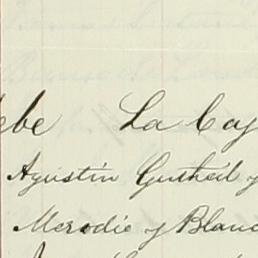 ebe La Caj
Agustin Gutheil y
Merodio y Blanc